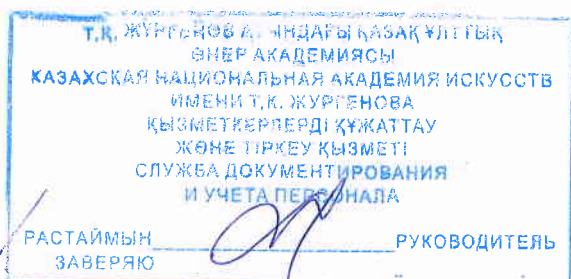 Т.К. ЖҮРГЕНОВ АТЫНДАҒЫ ҚАЗАҚ ҰЛТТЫҚ
ӨНЕР АКАДЕМИЯСЫ
КАЗАХСКАЯ НАЦИОНАЛЬНАЯ АКАДЕМИЯ ИСКУССТВ
ИМЕНИ Т.К. ЖУРГЕНОВА
ҚЫЗМЕТКЕРЛЕРДІ ҚҰЖАТТАУ
ЖӘНЕ ТІРКЕУ ҚЫЗМЕТІ
СЛУЖБА ДОКУМЕНТИРОВАНИЯ
И УЧЕТА ПЕРСОНАЛА
РАСТАЙМЫН РУКОВОДИТЕЛЬ
ЗАВЕРЯЮ